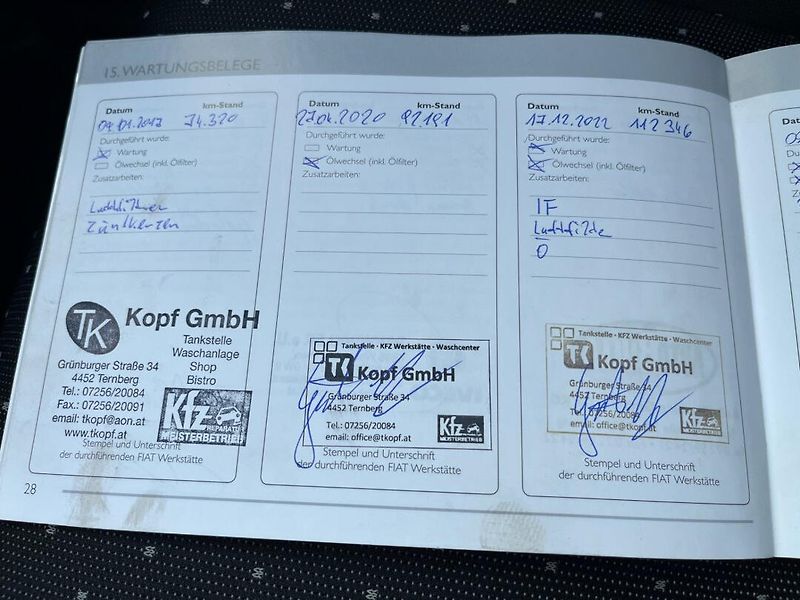 15. WARTUNGSBELEGE
Datum km-Stand
74.320
Durchgeführt wurde:
Wartung
Ölwechsel (inkl. Ölfilter)
Zusatzarbeiten:
Luftfilter
Zündkerzen
TK Kopf GmbH
Tankstelle
Waschanlage
Shop
Bistro
Grünburger Straße 34
4452 Ternberg
Tel.: 07256/20084
Fax.: 07256/20091
email: tkopf@aon.at
www.tkopf.at
Kfz
REPARATUR
MEISTERBETRIEB
Stempel und Unterschrift
der durchführenden FIAT Werkstätte
28
Datum km-Stand
27.04.2020 92191
Durchgeführt wurde:
Wartung
Ölwechsel (inkl. Ölfilter)
Zusatzarbeiten:
Tankstelle - KFZ Werkstätte - Waschcenter
TK Kopf GmbH
Grünburger Straße 34
4452 Ternberg
Tel.: 07256/20084
email: office@tkopf.at
Kfz
MEISTERBETRIEB
Stempel und Unterschrift
der durchführenden FIAT Werkstätte
Datum km-Stand
17.12.2022 112346
Durchgeführt wurde:
Wartung
Ölwechsel (inkl. Ölfilter)
Zusatzarbeiten:
IF
Luftfilter
Ö
Tankstelle - KFZ Werkstätte - Waschcenter
TK Kopf GmbH
Grünburger Straße 34
4452 Ternberg
Tel.: 07256/20084
email: office@tkopf.at
Kfz
MEISTERBETRIEB
Stempel und Unterschrift
der durchführenden FIAT Werkstätte